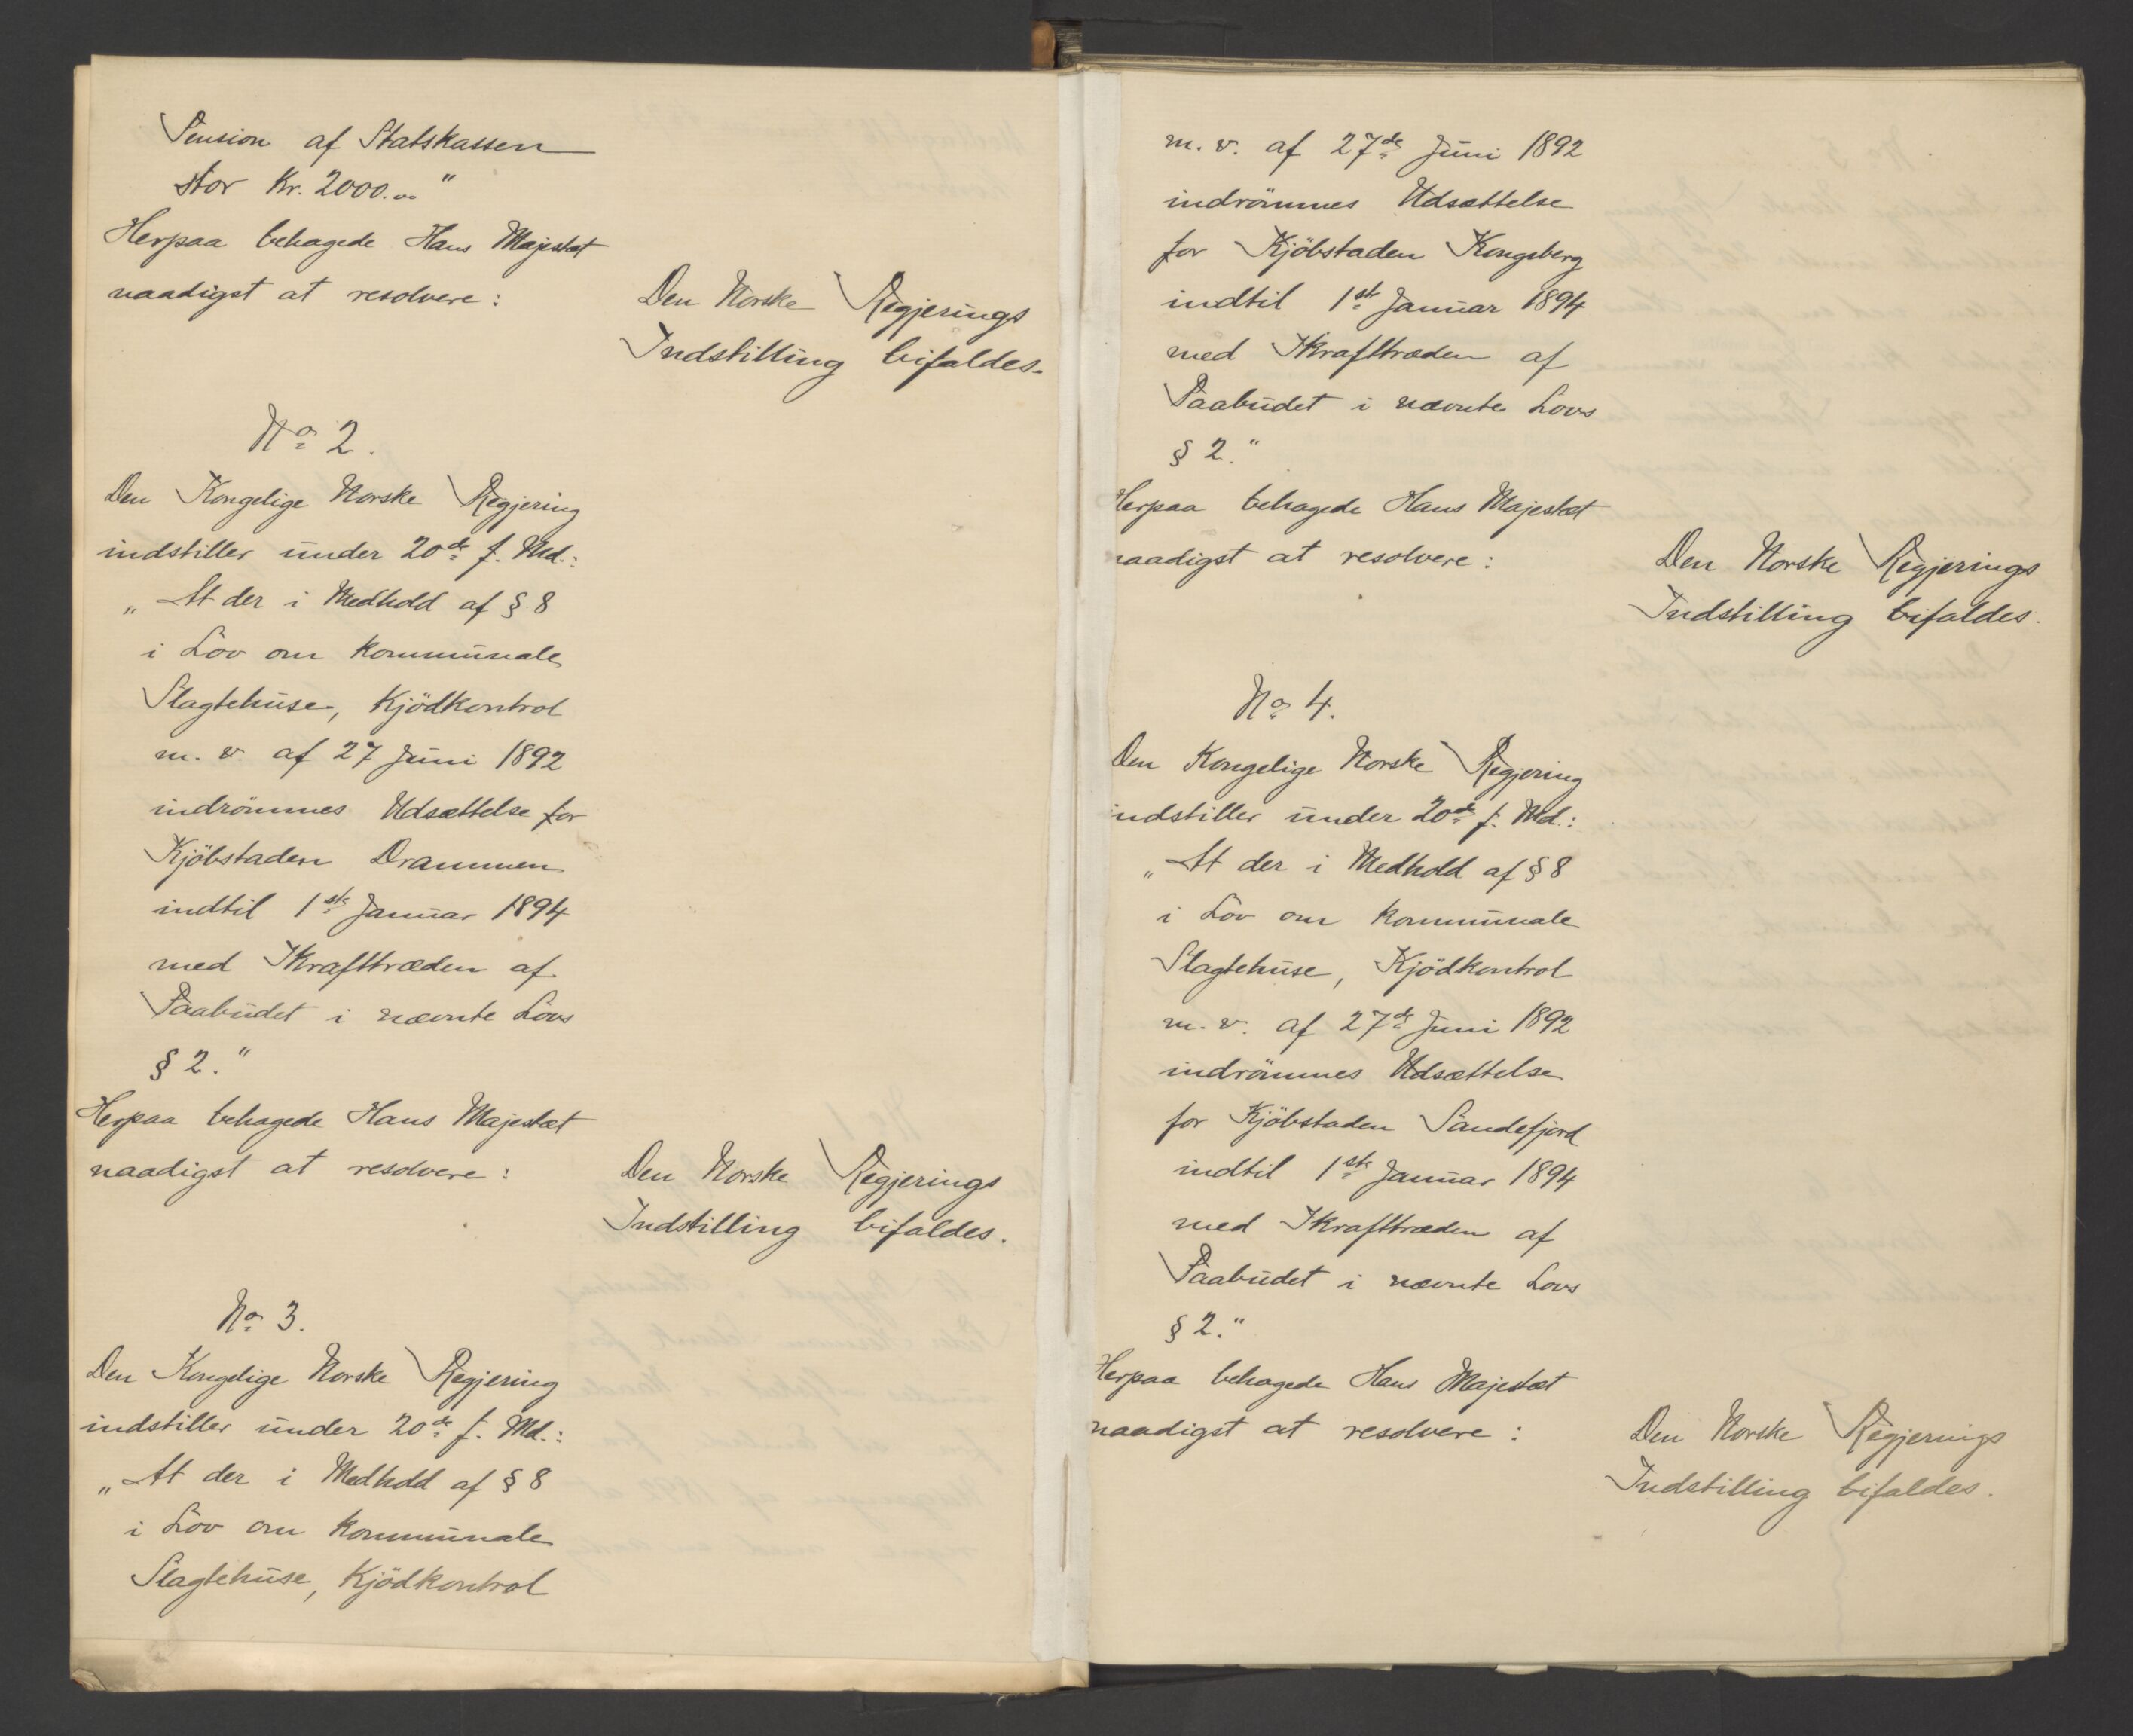 Pension af Statskassen
stor Kr. 2000.00"
Herpaa behagede Hans Majestæt
naadigst at resolvere:
Den Norske Regjerings
Indstilling bifaldes.
No 2.
Den Kongelige Norske Regjering
indstiller under 20de f. Md.:
„At der i Medhold af § 8
i Lov om kommunale
Slagtehuse, Kjödkontrol
m. v. af 27 Juni 1892
indrömmes Udsættelse for
Kjöbstaden Drammen
indtil 1ste Januar 1894
med Ikrafttræden af
Paabudet i nævnte Lovs
§ 2."
Herpaa behagede Hans Majestæt
naadigst at resolvere:
Den Norske Regjerings
Indstilling bifaldes.
No 3.
Den Kongelige Norske Regjering
indstiller under 20de f. Md.:
„At der i Medhold af § 8
i Lov om kommunale
Slagtehuse, Kjödkontrol
m. v. af 27de Juni 1892
indrömmes Udsættelse
for Kjöbstaden Kongsberg
indtil 1ste Januar 1894
med Ikrafttræden af
Paabudet i nævnte Lovs
§ 2."
Herpaa behagede Hans Majestæt
naadigst at resolvere:
Den Norske Regjerings
Indstilling bifaldes.
No 4.
Den Kongelige Norske Regjering
indstiller under 20de f. Md.:
„At der i Medhold af § 8
i Lov om kommunale
Slagtehuse, Kjödkontrol
m. v. af 27de Juni 1892
indrömmes Udsættelse
for Kjöbstaden Sandefjord
indtil 1ste Januar 1894
med Ikrafttræden af
Paabudet i nævnte Lovs
§ 2."
Herpaa behagede Hans Majestæt
naadigst at resolvere:
Den Norske Regjerings
Indstilling bifaldes.